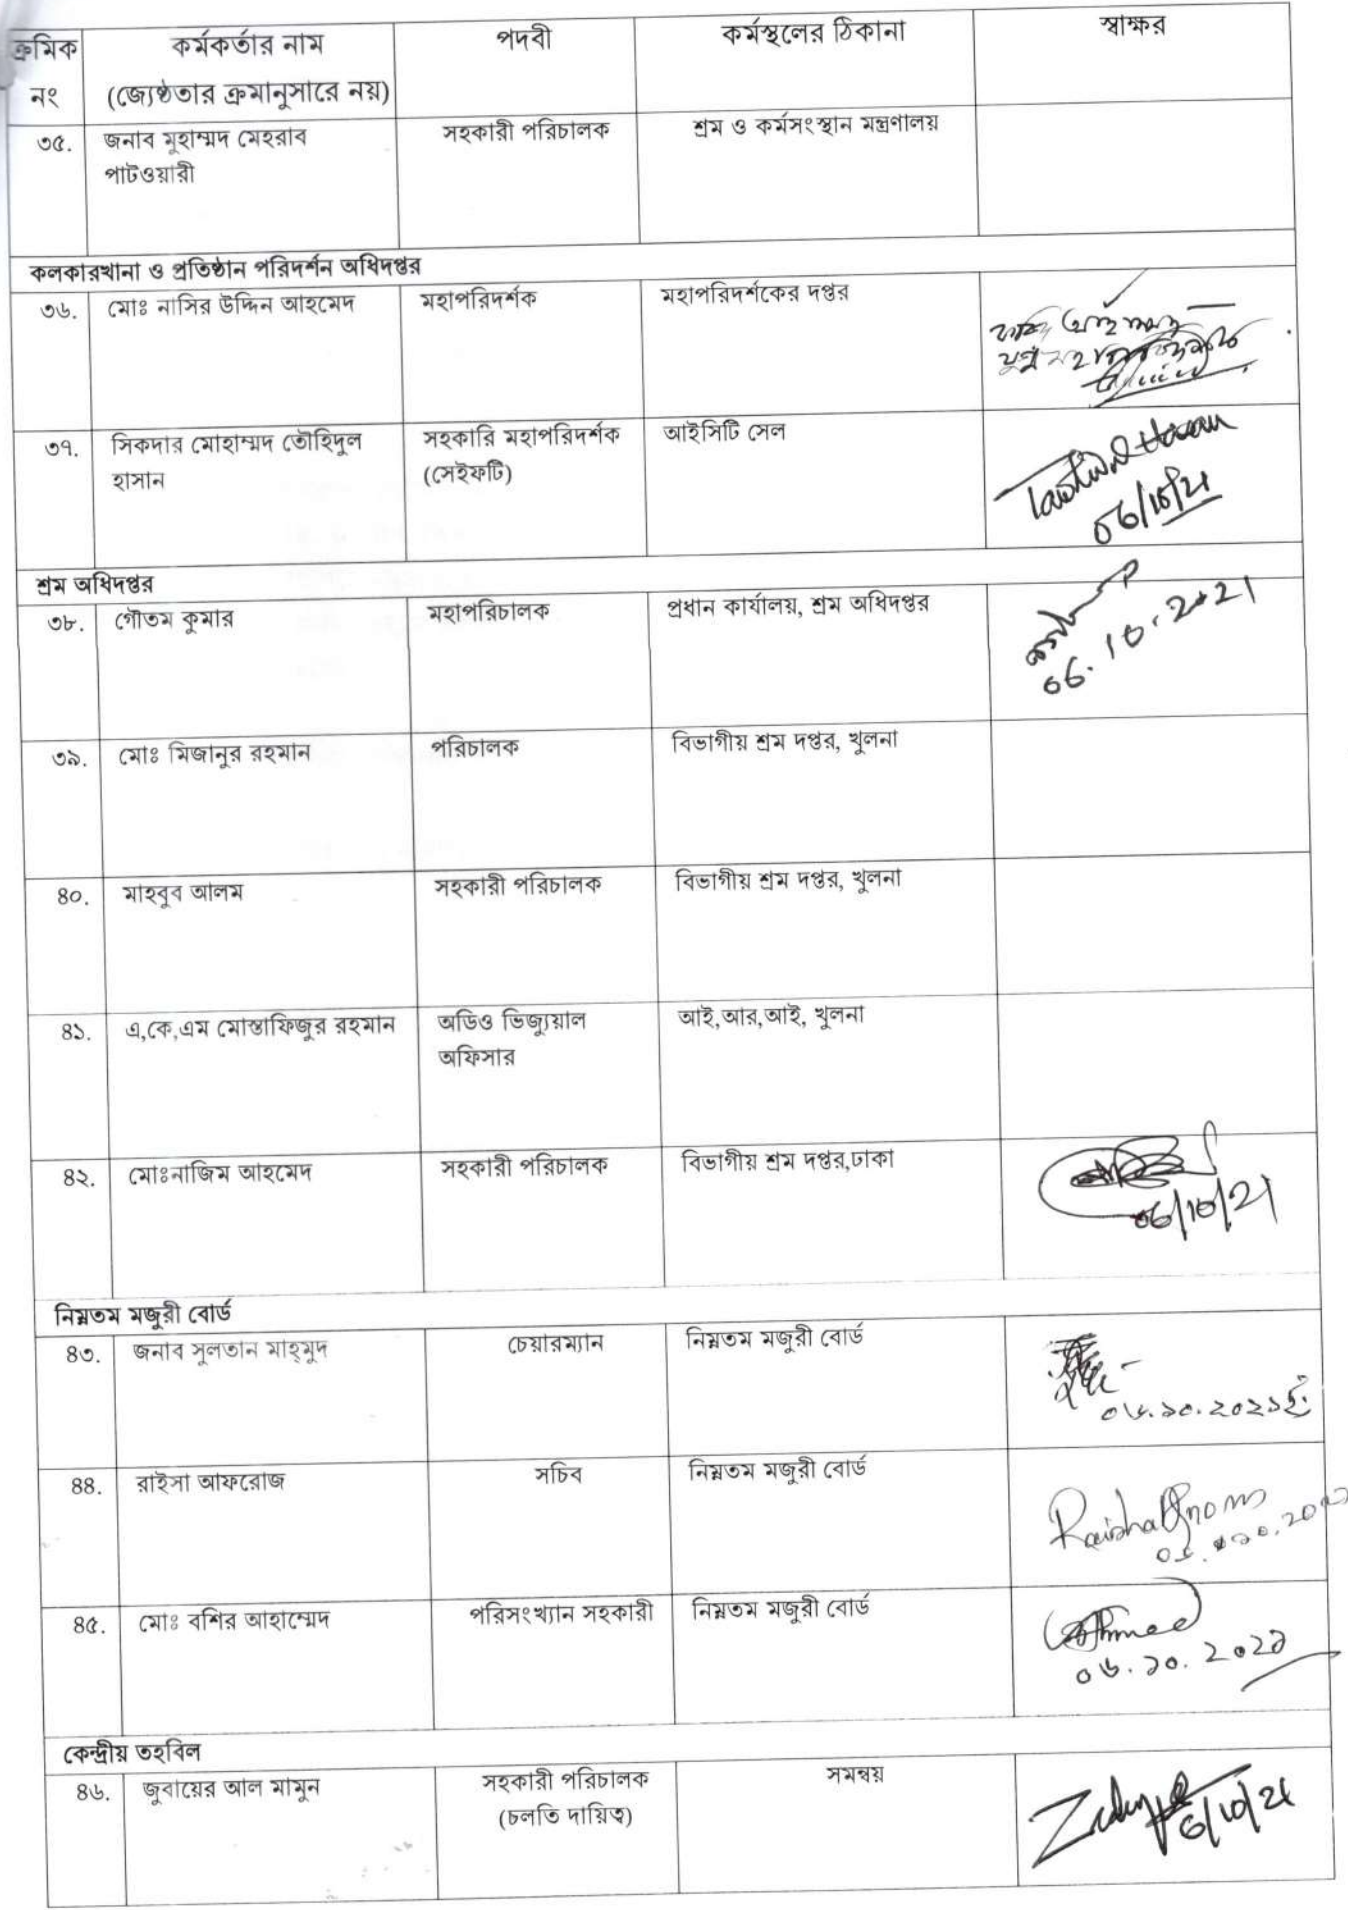 ক্রমিক নং কর্মকর্তার নাম (জ্যেষ্ঠতার ক্রমানুসারে নয়) পদবী কর্মস্থলের ঠিকানা স্বাক্ষর
৩৫. জনাব মুহাম্মদ মেহরাব পাটওয়ারী সহকারী পরিচালক শ্রম ও কর্মসংস্থান মন্ত্রণালয়
কলকারখানা ও প্রতিষ্ঠান পরিদর্শন অধিদপ্তর
৩৬. মোঃ নাসির উদ্দিন আহমেদ মহাপরিদর্শক মহাপরিদর্শকের দপ্তর
৩৭. সিকদার মোহাম্মদ তৌহিদুল হাসান সহকারি মহাপরিদর্শক (সেইফটি) আইসিটি সেল
06/10/21
শ্রম অধিদপ্তর
৩৮. গৌতম কুমার মহাপরিচালক প্রধান কার্যালয়, শ্রম অধিদপ্তর
06.10.2021
৩৯. মোঃ মিজানুর রহমান পরিচালক বিভাগীয় শ্রম দপ্তর, খুলনা
৪০. মাহবুব আলম সহকারী পরিচালক বিভাগীয় শ্রম দপ্তর, খুলনা
৪১. এ,কে,এম মোস্তাফিজুর রহমান অডিও ভিজ্যুয়াল অফিসার আই,আর,আই, খুলনা
৪২. মোঃনাজিম আহমেদ সহকারী পরিচালক বিভাগীয় শ্রম দপ্তর,ঢাকা
06/10/21
নিম্নতম মজুরী বোর্ড
৪৩. জনাব সুলতান মাহ্‌মুদ চেয়ারম্যান নিম্নতম মজুরী বোর্ড
০৬.১০.২০২১ইং
৪৪. রাইসা আফরোজ সচিব নিম্নতম মজুরী বোর্ড
৪৫. মোঃ বশির আহাম্মেদ পরিসংখ্যান সহকারী নিম্নতম মজুরী বোর্ড
০৬.১০.২০২১
কেন্দ্রীয় তহবিল
৪৬. জুবায়ের আল মামুন সহকারী পরিচালক (চলতি দায়িত্ব) সমন্বয়
6/10/21